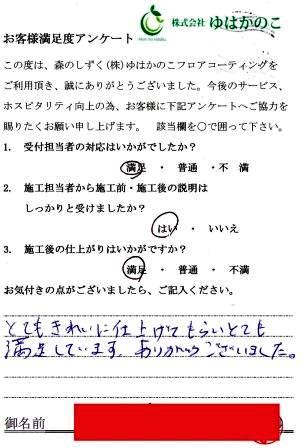 株式会社 ゆはかのこ
お客様満足度アンケート
この度は、森のしずく(株)ゆはかのこフロアコーティングを
ご利用頂き、誠にありがとうございました。今後のサービス、
ホスピタリティ向上の為、お客様に下記アンケートへご協力を
賜りたくお願い申し上げます。 該当欄を〇で囲って下さい。
1. 受付担当者の対応はいかがでしたか?
満足 ・ 普通 ・不 満
2. 施工担当者から施工前・施工後の説明は
しっかりと受けましたか?
はい ・ いいえ
3. 施工後の仕上がりはいかがですか?
満足 ・ 普通 ・ 不満
お気付きの点がございましたら、ご記入ください。
とてもきれいに仕上げてもらいとても
満足しています。ありがとうございました。
御名前